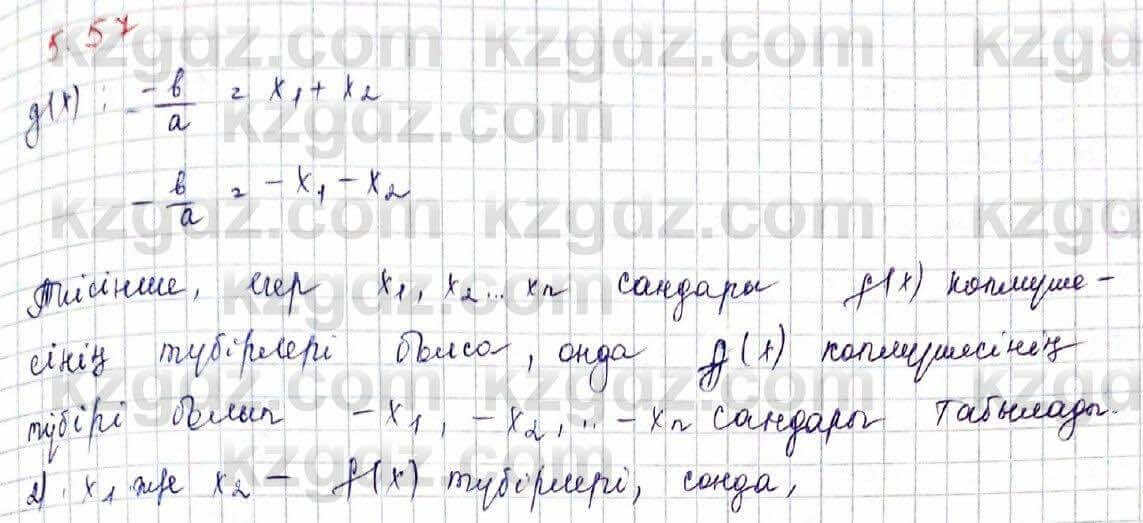 5.57
g(x): -b/a = x₁ + x₂
-b/a = -x₁ - x₂
Тиісінше, егер x₁, x₂... xn сандары f(x) копмүше-
сінің түбірлері болса, онда g(x) копмүшесінің
түбірі болып -x₁, -x₂, .. -xn сандары табылады.
2) x₁ же x₂ - f(x) түбірлері, сонда,
kzgdz.com